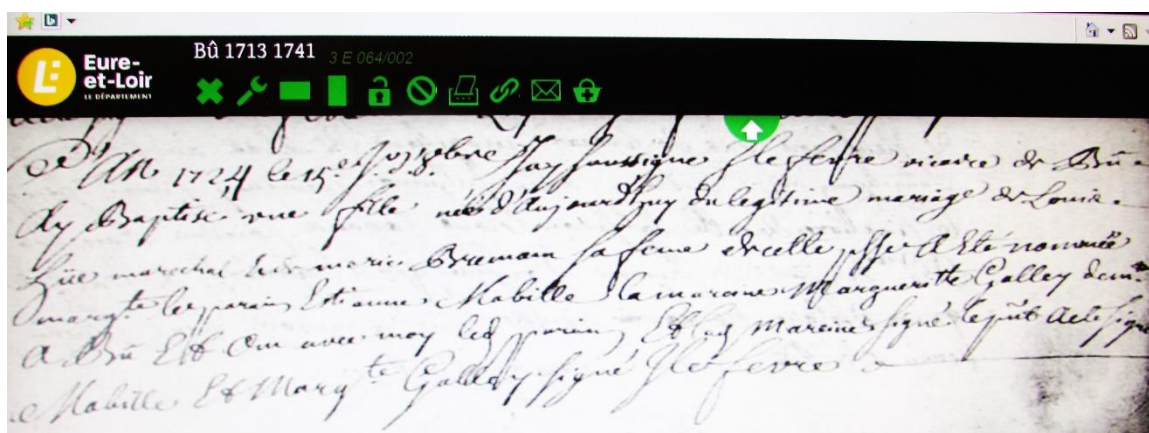 Bû 1713 1741 3 E 064/002
Eure-
et-Loir
LE DÉPARTEMENT
L'An 1724 le 15e Jour Jay soussigné J lefevre vicaire de Bû
Ay Baptisé une fille née d'aujourd'huy du legitime mariage de Louis
marechal et de marie Bremam sa feme a Eté nomméé
margte le parain Etienne Mabille la maraine Margueritte Galley dem
a Bû Et Ont avec moy led parain Et lad Mareine signé le pnt acte signé
Mabille Et Margte Galley signé J lefevre